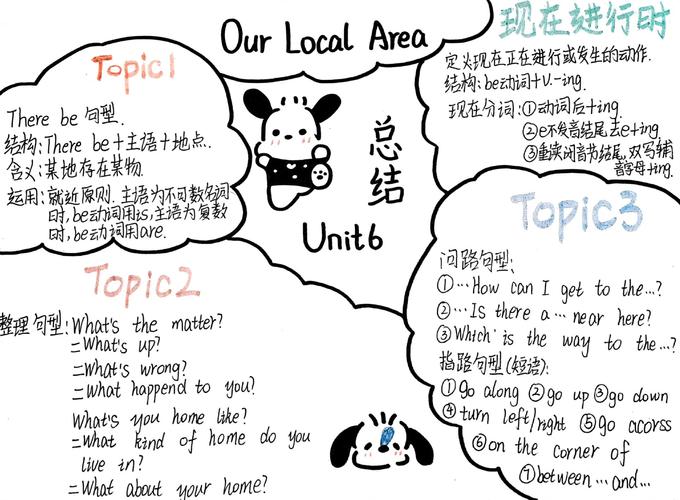 Our Local Area
总结
Unit6
Topic1
There be 句型.
结构:There be+主语+地点.
含义:某地存在某物.
运用:就近原则.主语为不可数名词
时,be动词用is,主语为复数
时,be动词用are.
现在进行时
定义现在正在进行或发生的动作.
结构:be动词+V.-ing.
现在分词:①动词后+ing
②e不发音结尾去e+ing
③重读闭音节结尾,双写辅
音字母+ing.
Topic2
整理句型:What's the matter?
=What's up?
=What's wrong?
=What happend to you?
What's you home like?
=What kind of home do you
live in?
=What about your home?
Topic3
问路句型:
①…How can I get to the…?
②…Is there a … near here?
③Which is the way to the…?
指路句型(短语):
①go along ②go up ③go down
④turn left/right ⑤go acorss
⑥on the corner of
⑦between … and…